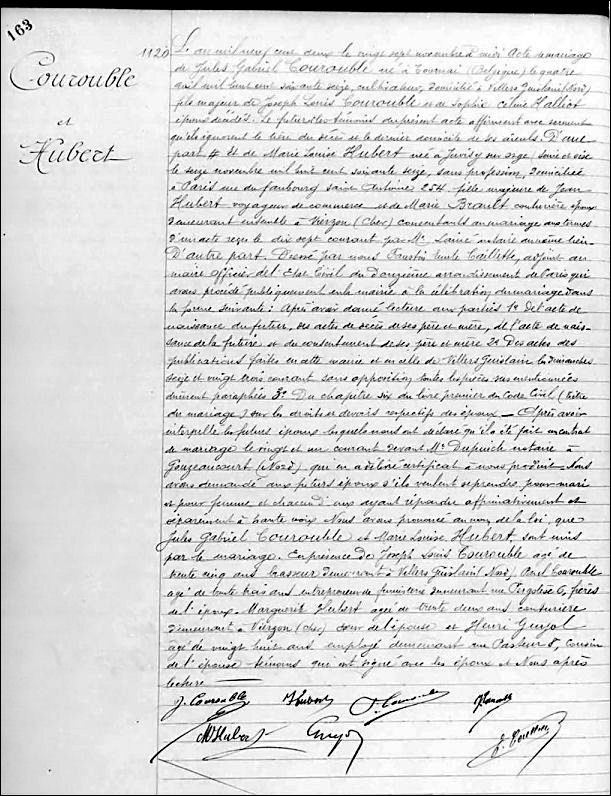 163
1120
Courouble
et
Hubert
L'an mil neuf cent deux le vingt sept novembre à midi Acte de mariage
de Jules Gabriel Courouble né à Tournai (Belgique) le quatre
avril mil huit cent soixante seize, cultivateur, domicilié à Villers Guislain (Nord)
fils majeur de Joseph Louis Courouble et de Sophie Celine Halliot
époux décédés. Le futur et les témoins du présent acte affirment avec serment
qu'ils ignorent le lieu du décès et le dernier domicile de ses aïeuls. D'une
part # Et de Marie Louise Hubert née à Juvisy sur orge, seine et oise
le seize novembre mil huit cent soixante seize, sans profession, domiciliée
à Paris rue du faubourg saint Antoine 254 fille majeure de Jean
Hubert voyageur de commerce et de Marie Brault couturière époux
demeurant ensemble à Vierzon (Cher) consentants au mariage aux termes
d'un acte reçu le dix sept courant par Me Laine notaire au même lieu
D'autre part. Dressé par nous Faustin Emile Caillette, adjoint au
maire officier de l'Etat Civil du Douzième arrondissement de Paris qui
avons procédé publiquement en la mairie à la célébration du mariage dans
la forme suivante : Après avoir donné lecture aux parties 1° De l'acte de
naissance du futur, des actes de décès de ses père et mère, de l'acte de nais-
sance de la future et du consentement de ses père et mère 2° Des actes des
publications faites en cette mairie et en celle de Villers Guislain les dimanches
seize et vingt trois courant sans opposition toutes les pièces sus mentionnées
dûment paraphées 3° Du chapitre six du livre premier du Code Civil (titre
du mariage) sur les droits et devoirs respectifs des époux _ Après avoir
interpellé les futurs époux lesquels nous ont déclaré qu'il a été fait un contrat
de mariage le vingt et un courant devant Me notaire à
Gouzeaucourt (Nord) qui en a délivré certificat à nous produit _ Nous
avons demandé aux futurs époux s'ils veulent se prendre pour mari
et pour femme et chacun d'eux ayant répondu affirmativement et
séparément à haute voix Nous avons prononcé au nom de la loi, que
Jules Gabriel Courouble et Marie Louise Hubert, sont unis
par le mariage. En présence de Joseph Louis Courouble agé de
trente cinq ans brasseur demeurant à Villers Guislain (Nord) Paul Courouble
agé de trente trois ans entrepreneur de fumisterie demeurant rue Pergolèse 6, frères
de l'époux Marguerite Hubert agée de trente deux ans couturière
demeurant à Vierzon (cher) sœur de l'épouse et Henri Guyot
agé de vingt huit ans employé demeurant rue Pasteur 8, cousin
de l'épouse témoins qui ont signé avec les époux et Nous après
lecture
J. Courouble Hubert
M Hubert Guyot